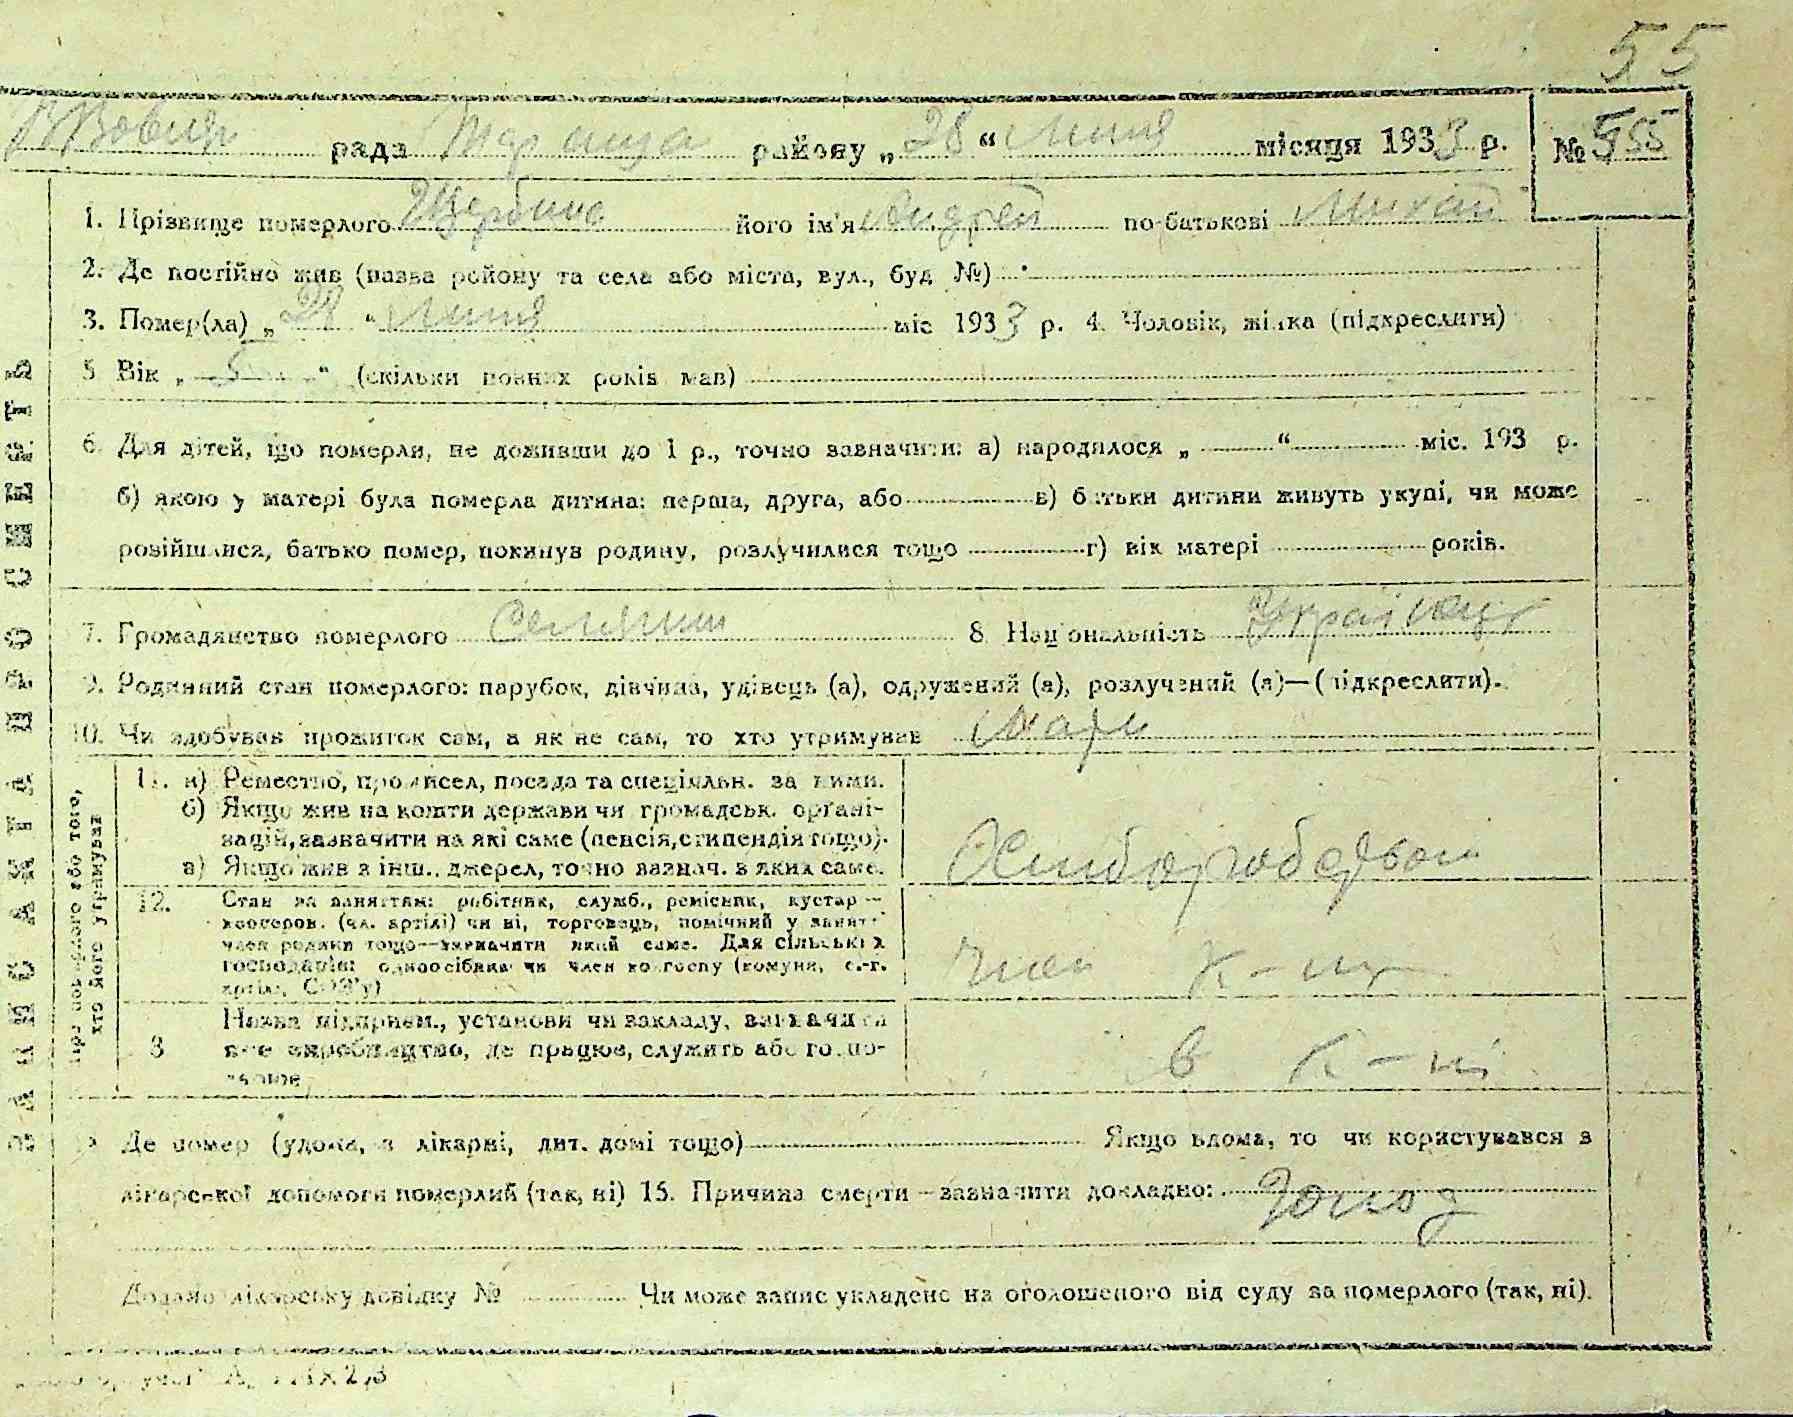 55
В Вовча рада Тараща району „28“ Липня місяця 1933 р. № 555
1. Прізвище померлого Щербина його ім'я Андрей по-батькові Михай
2. Де постійно жив (назва району та села або міста, вул., буд №)
3. Помер(ла) „28“ Липня міс 1933 р. 4. Чоловік, жінка (підкреслити)
5 Вік „5“ (скільки повних років мав)
6. Для дітей, що померли, не доживши до 1 р., точно зазначити: а) народилося „ “ міс. 193 р.
б) якою у матері була померла дитина: перша, друга, або в) батьки дитини живуть укупі, чи може
розійшлися, батько помер, покинув родину, розлучилися тощо г) вік матері років.
7. Громадянство померлого Селянин 8 Національність Українец
9. Родинний стан померлого: парубок, дівчина, удівець (а), одружений (а), розлучений (а)—(підкреслити).
10. Чи здобував прожиток сам, а як не сам, то хто утримував Мари
ЗАПИС АКТА ПРО СМЕРТЬ
Про померлого або того, хто його утримував
11. а) Ремество, промисел, посада та спеціяльн. за ними.
б) Якщо жив на кошти держави чи громадськ. органі-
зацій, зазначити на які саме (пенсія, стипендія тощо).
в) Якщо жив з інш.. джерел, точно зазнач. з яких саме.
Хлиборобством
12. Стан за заняттям: робітник, служб., ремісник, кустар—
кооперов. (чл. артілі) чи ні, торговець, помічний у занятті
член родини тощо—зазначити який саме. Для сільських
господарів: одноосібник чи член колгоспу (комуни, с.-г.
артілі, СОЗ'у)
член к-пу
3 Назва підприєм., установи чи закладу, зазначити
все виробництво, де працює, служить або госпо-
дарює
в к-пі
Де помер (удома, в лікарні, дит. домі тощо) Якщо вдома, то чи користувався з
лікарської допомоги померлий (так, ні) 15. Причина смерти—зазначити докладно: Голод
Додано лікарську довідку № Чи може запис укладено на оголошеного від суду за померлого (так, ні).